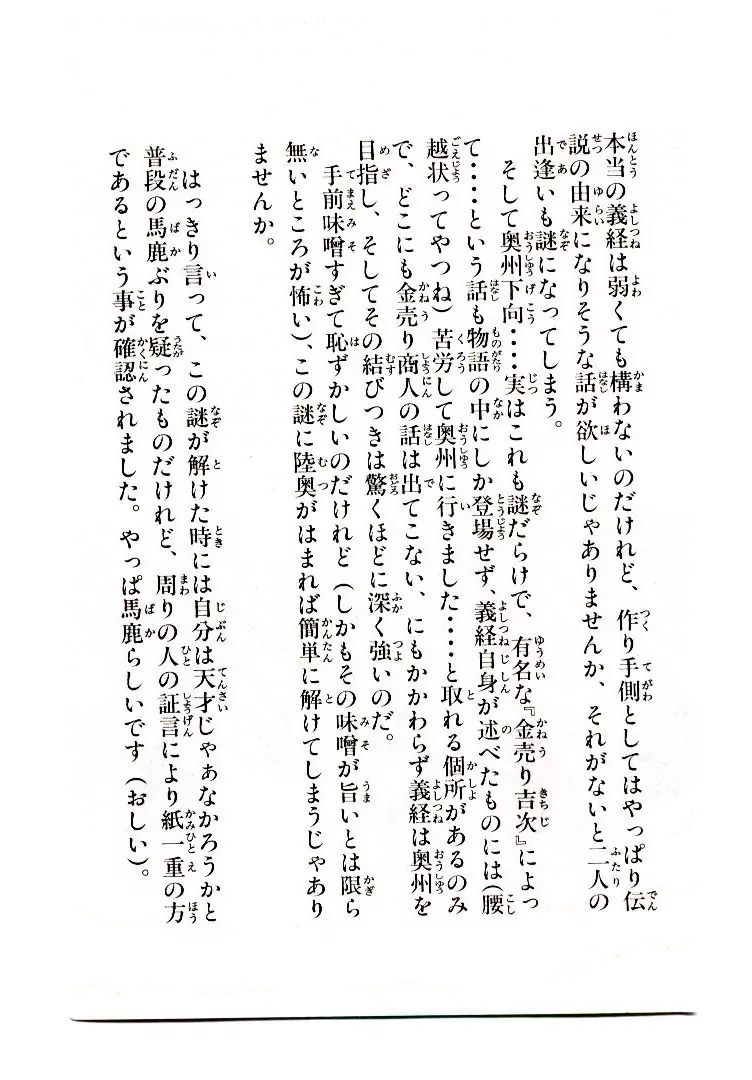 本当の義経は弱くても構わないのだけれど、作り手側としてはやっぱり伝
説の由来になりそうな話が欲しいじゃありませんか、それがないと二人の
出逢いも謎になってしまう。
そして奥州下向・・・・実はこれも謎だらけで、有名な『金売り吉次』によっ
て・・・・という話も物語の中にしか登場せず、義経自身が述べたものには(腰
越状ってやつね)苦労して奥州に行きました・・・・と取れる個所があるのみ
で、どこにも金売り商人の話は出てこない、にもかかわらず義経は奥州を
目指し、そしてその結びつきは驚くほどに深く強いのだ。
手前味噌すぎて恥ずかしいのだけれど(しかもその味噌が旨いとは限ら
無いところが怖い)、この謎に陸奥がはまれば簡単に解けてしまうじゃあり
ませんか。
はっきり言って、この謎が解けた時には自分は天才じゃぁなかろうかと
普段の馬鹿ぶりを疑ったものだけれど、周りの人の証言により紙一重の方
であるという事が確認されました。やっぱ馬鹿らしいです(おしい)。